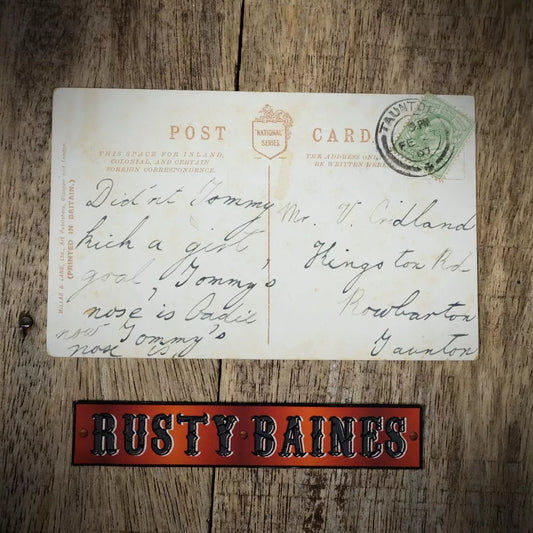 POST CARD
"NATIONAL" SERIES.
THIS SPACE FOR INLAND,
COLONIAL, AND CERTAIN
FOREIGN CORRESPONDENCE.
THE ADDRESS ONLY
BE WRITTEN HERE
MILLAR & LANG, LTD., Art Publishers, Glasgow and London.
(PRINTED IN BRITAIN.)
TAUNTON
FE
07
Did'nt Tommy
kick a
goal, Tommy's
nose is
now Tommy's
nose is
Mr. V. Cridland
Kingston Rd
Rowbarton
Taunton
RUSTY BAINES